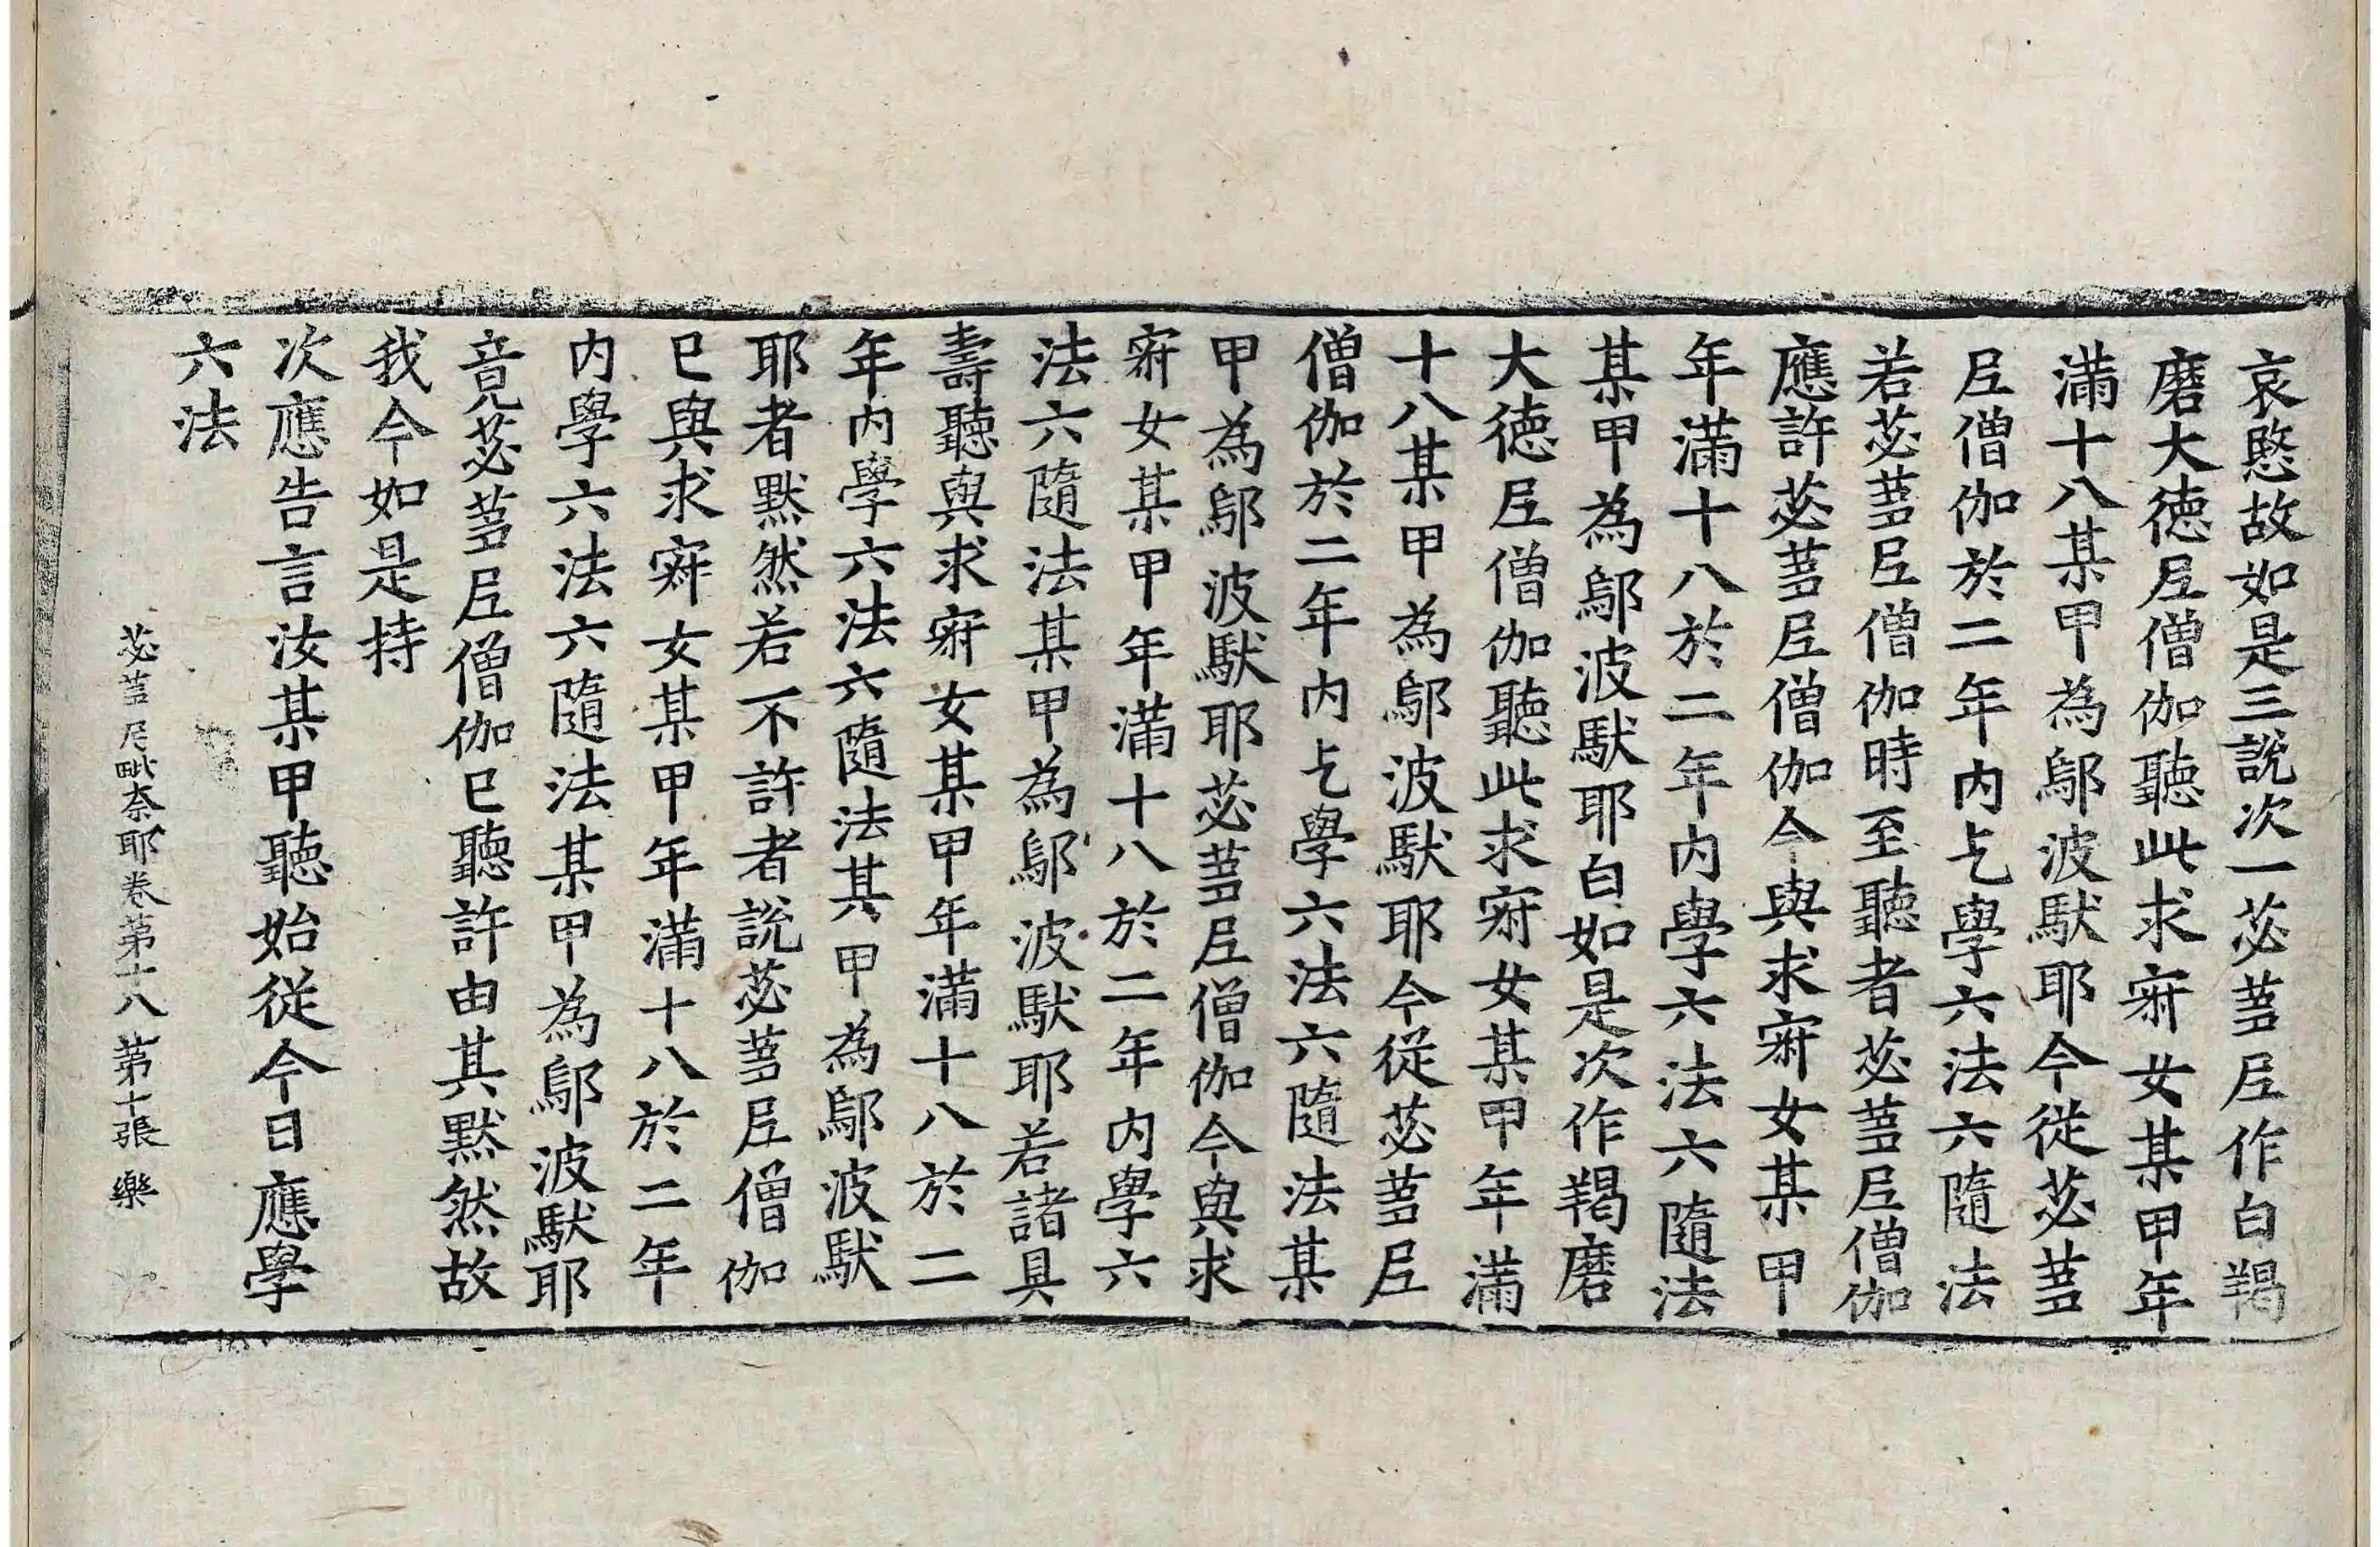 哀愍故如是三說次一苾蒭尼作白羯
磨大徳尼僧伽聽此求寂女某甲年
滿十八某甲為鄔波馱耶今從苾蒭
尼僧伽於二年內乞學六法六隨法
若苾蒭尼僧伽時至聽者苾蒭尼僧伽
應許苾蒭尼僧伽今與求寂女某甲
年滿十八於二年內學六法六隨法
某甲為鄔波馱耶白如是次作羯磨
大徳尼僧伽聽此求寂女某甲年滿
十八某甲為鄔波馱耶今從苾蒭尼
僧伽於二年内乞學六法六隨法某
甲為鄔波馱耶苾蒭尼僧伽今與求
寂女某甲年滿十八於二年内學六
法六隨法某甲為鄔波馱耶若諸具
壽聽與求寂女某甲年滿十八於二
年内學六法六隨法其甲為鄔波馱
耶者默然若不許者說苾蒭尼僧伽
已與求寂女某甲年滿十八於二年
内學六法六隨法某甲為鄔波馱耶
竟苾蒭尼僧伽已聽許由其默然故
我今如是持
次應告言汝某甲聽始從今日應學
六法
苾蒭尼毗奈耶卷第十八 第十張 樂